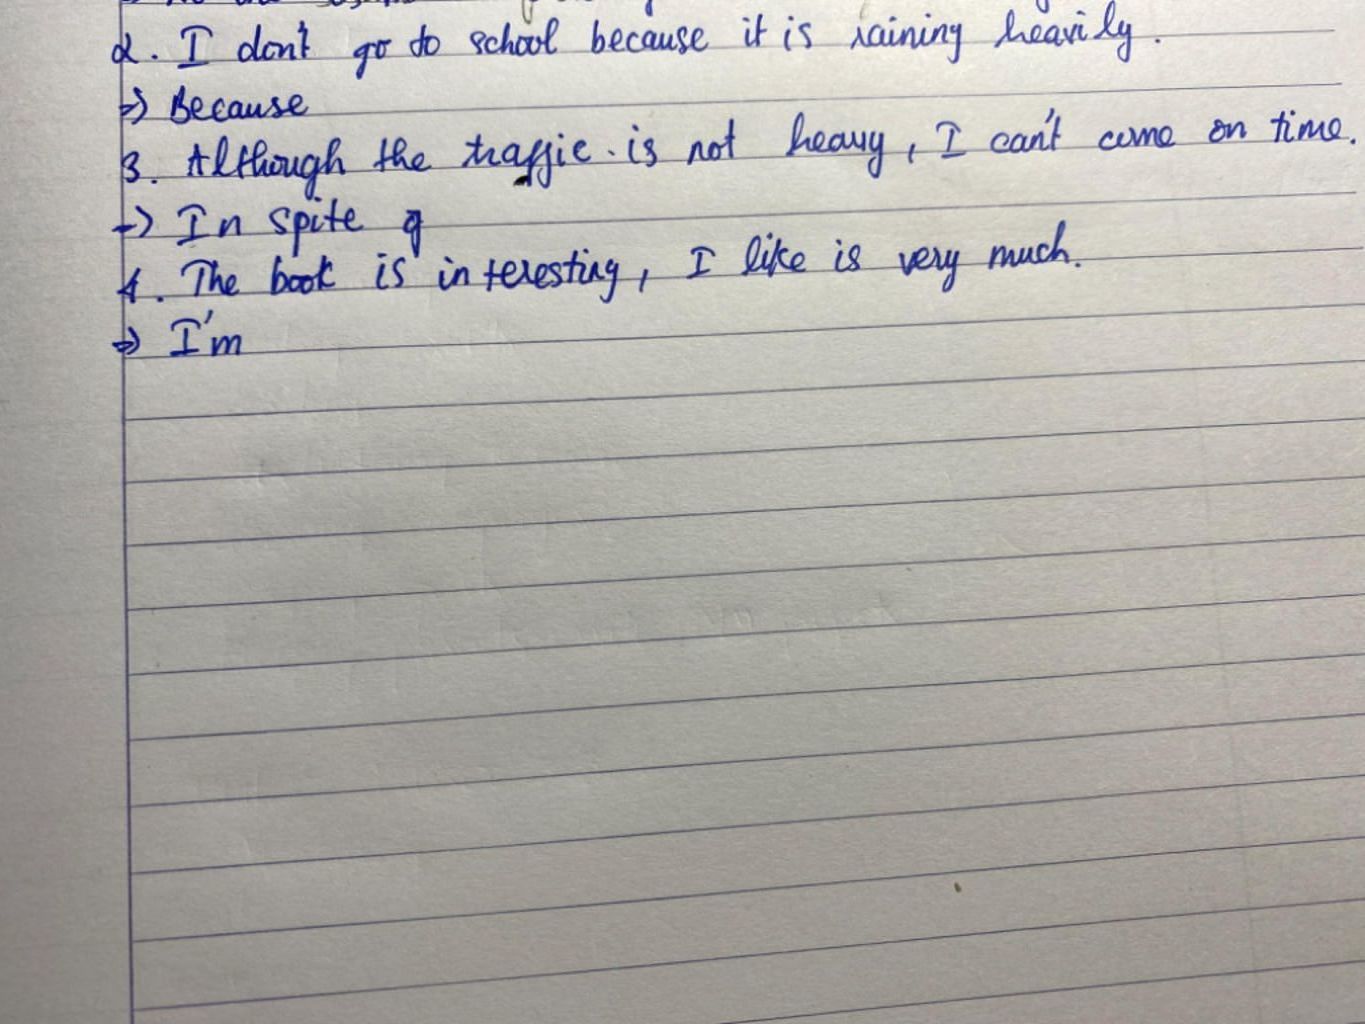 2. I don't go to school because it is raining heavily.
=> Because
3. Although the traffic is not heavy, I can't come on time.
-> In spite of
4. The book is interesting, I like is very much.
=> I'm